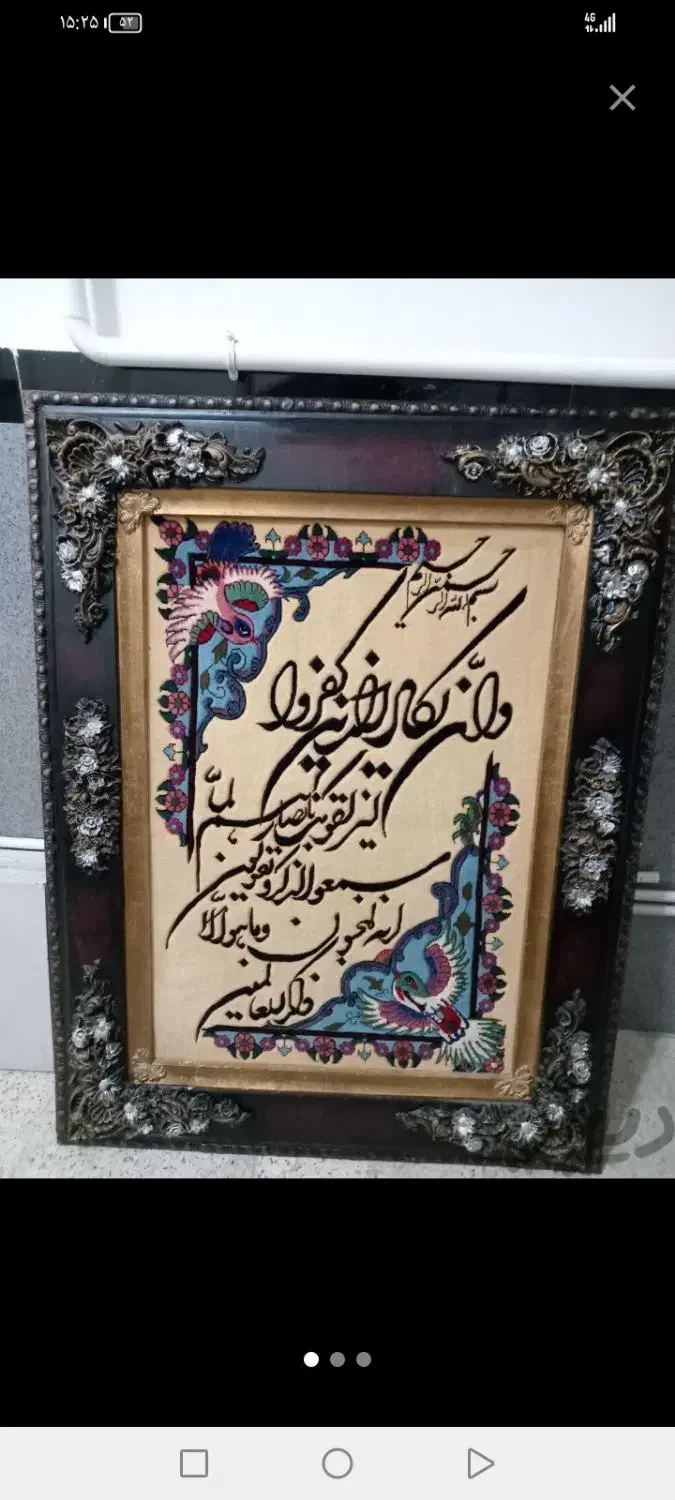 ۱۵:۲۵
۵۲
4G
بسم الله الرحمن الرحیم
وان یکاد الذین کفروا
لیزلقونک بابصارهم لما
سمعوا الذکر و یقولون
انه لمجنون وما هو الا
ذکر للعالمین